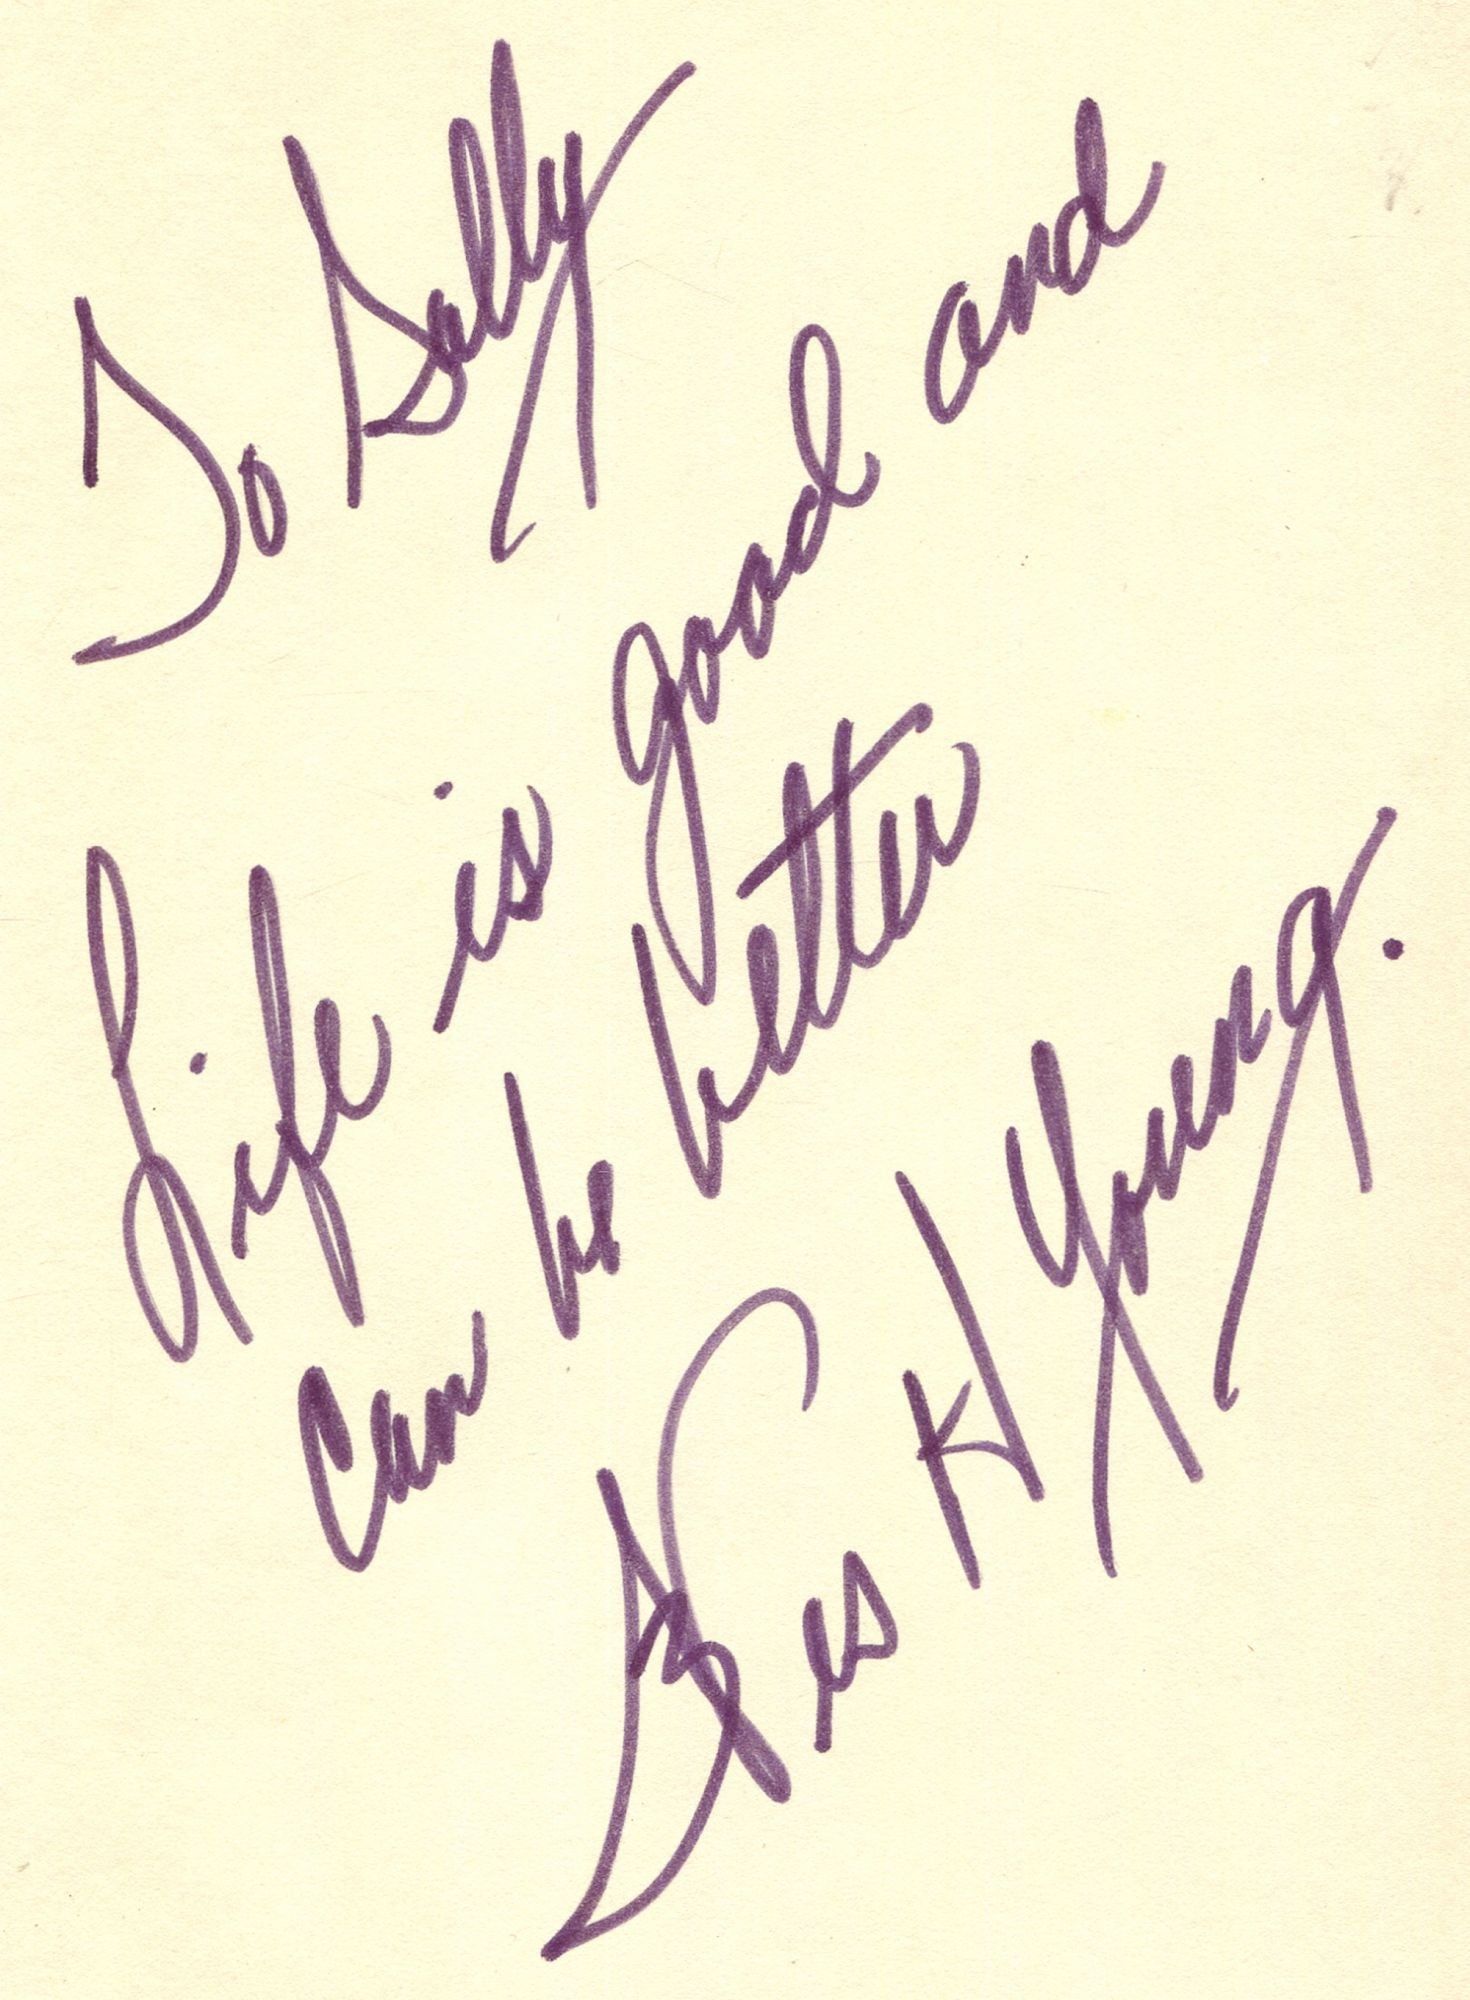 To Sally
Life is good and
can be better
H Young.